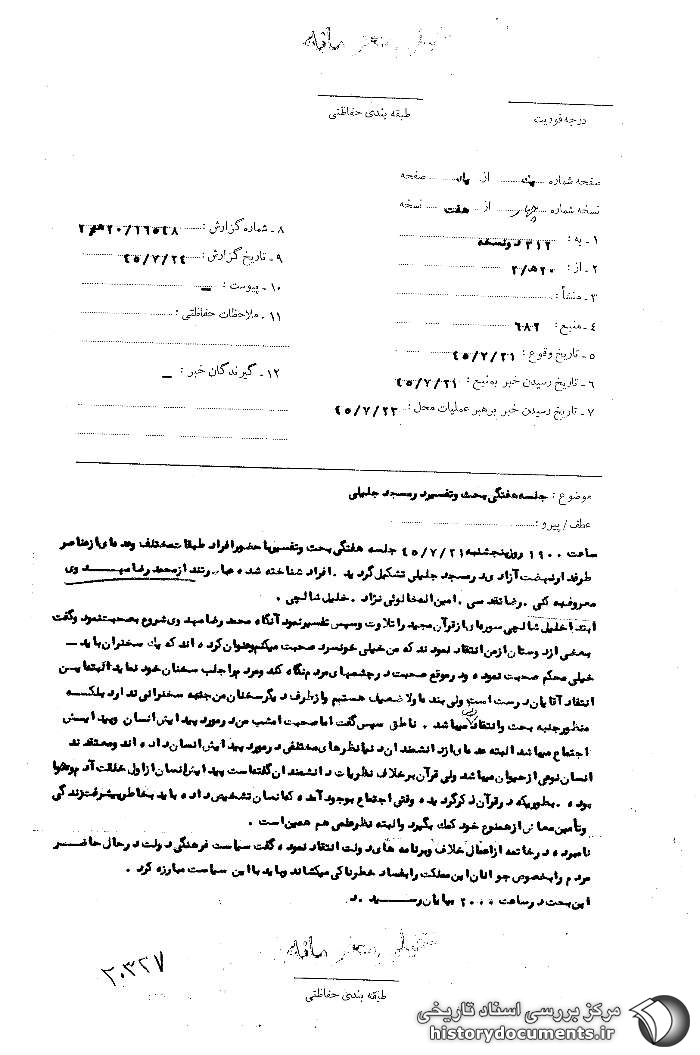 طبقه بندی حفاظتی
درجه فوریت
صفحه شماره یك از یك صفحه
نسخه شماره چهار از هفت نسخه
۱ـ به : ۳۱۲ دونسخه
۲ـ از : ۲۰هـ/۲
۳ـ منشأ :
۴ـ منبع : ۶۸۲
۵ـ تاریخ وقوع : ۴۵/۷/۲۱
۶ـ تاریخ رسیدن خبر بمنبع : ۴۵/۷/۲۱
۷ـ تاریخ رسیدن خبر برهبر عملیات محل : ۴۵/۷/۲۳
۸ـ شماره گزارش : ۲۰/۱۱۵۴۸هـ۲
۹ـ تاریخ گزارش : ۴۵/۷/۲۴
۱۰ـ پیوست : ـ
۱۱ـ ملاحظات حفاظتی :
۱۲ـ گیرندگان خبر : ـ
موضوع : جلسه هفتگی بحث وتفسیردرمسجد جلیلی
عطف/پیرو :
ساعت ۱۹۰۰ روزپنجشنبه ۴۵/۷/۲۱ جلسه هفتگی بحث وتفسیرباحضورافراد طبقات مختلف وعده ای ازعناصر
طرفدارنهضت آزادی درمسجد جلیلی تشکیل گردید . افراد شناخته شده عبارتند ازمحمد رضا مهدوی
معروف به کنی . رضا تقدسی . امین اله خالوئی نژاد . خلیل شالچی .
ابتدا خلیل شالچی سوره ای ازقرآن مجید را تلاوت وسپس تفسیرنمود آنگاه محمد رضا مهدوی شروع بصحبت نمود وگفت
بعضی ازدوستان ازمن انتقاد نمودند که من خیلی خونسرد صحبت میکنم وعنوان کرده اند که یك سخنران باید ـ
خیلی محکم صحبت نموده ودرموقع صحبت درچشمهای مردم نگاه کند ومردم را جلب سخنان خود نماید البته این
انتقاد آقایان درست است ولی بنده اولا ضعیف هستم وازطرف دیگر سخنان من جنبه سخنرانی ندارد بلکه
منظورجنبه بحث وانتقاد میباشد . ناطق سپس گفت اما صحبت امشب من درمورد پیدایش انسان وپیدایش
اجتماع میباشد البته عده ای ازدانشمندان دنیا نظرهای مختلفی درمورد پیدایش انسان داده اند ومعتقدند
انسان نوعی ازحیوان میباشد ولی قرآن برخلاف نظریات دانشمندان گفته است پیدایش انسان ازاول خلقت آدم وحوا
بوده . بطوریکه درقرآن ذکرگردیده وقتی اجتماع بوجود آمده که انسان تشخیص داده باید بخاطر پیشرفت زندگی
وتأمین معاش ازهمنوع خود کمك بگیرد والبته نظرقطعی هم همین است .
نامبرده درخاتمه ازاعمال خلاف وبرنامه های دولت انتقاد نموده گفت سیاست فرهنگی دولت درحال حاضر
مردم را بخصوص جوانان این مملکت را بفساد خطرناکی میکشاند وباید با این سیاست مبارزه کرد .
این بحث درساعت ۲۰۰۰ بپایان رسید . د
طبقه بندی حفاظتی
۲۰۳۲۷
مرکز بررسی اسناد تاریخی
historydocuments.ir